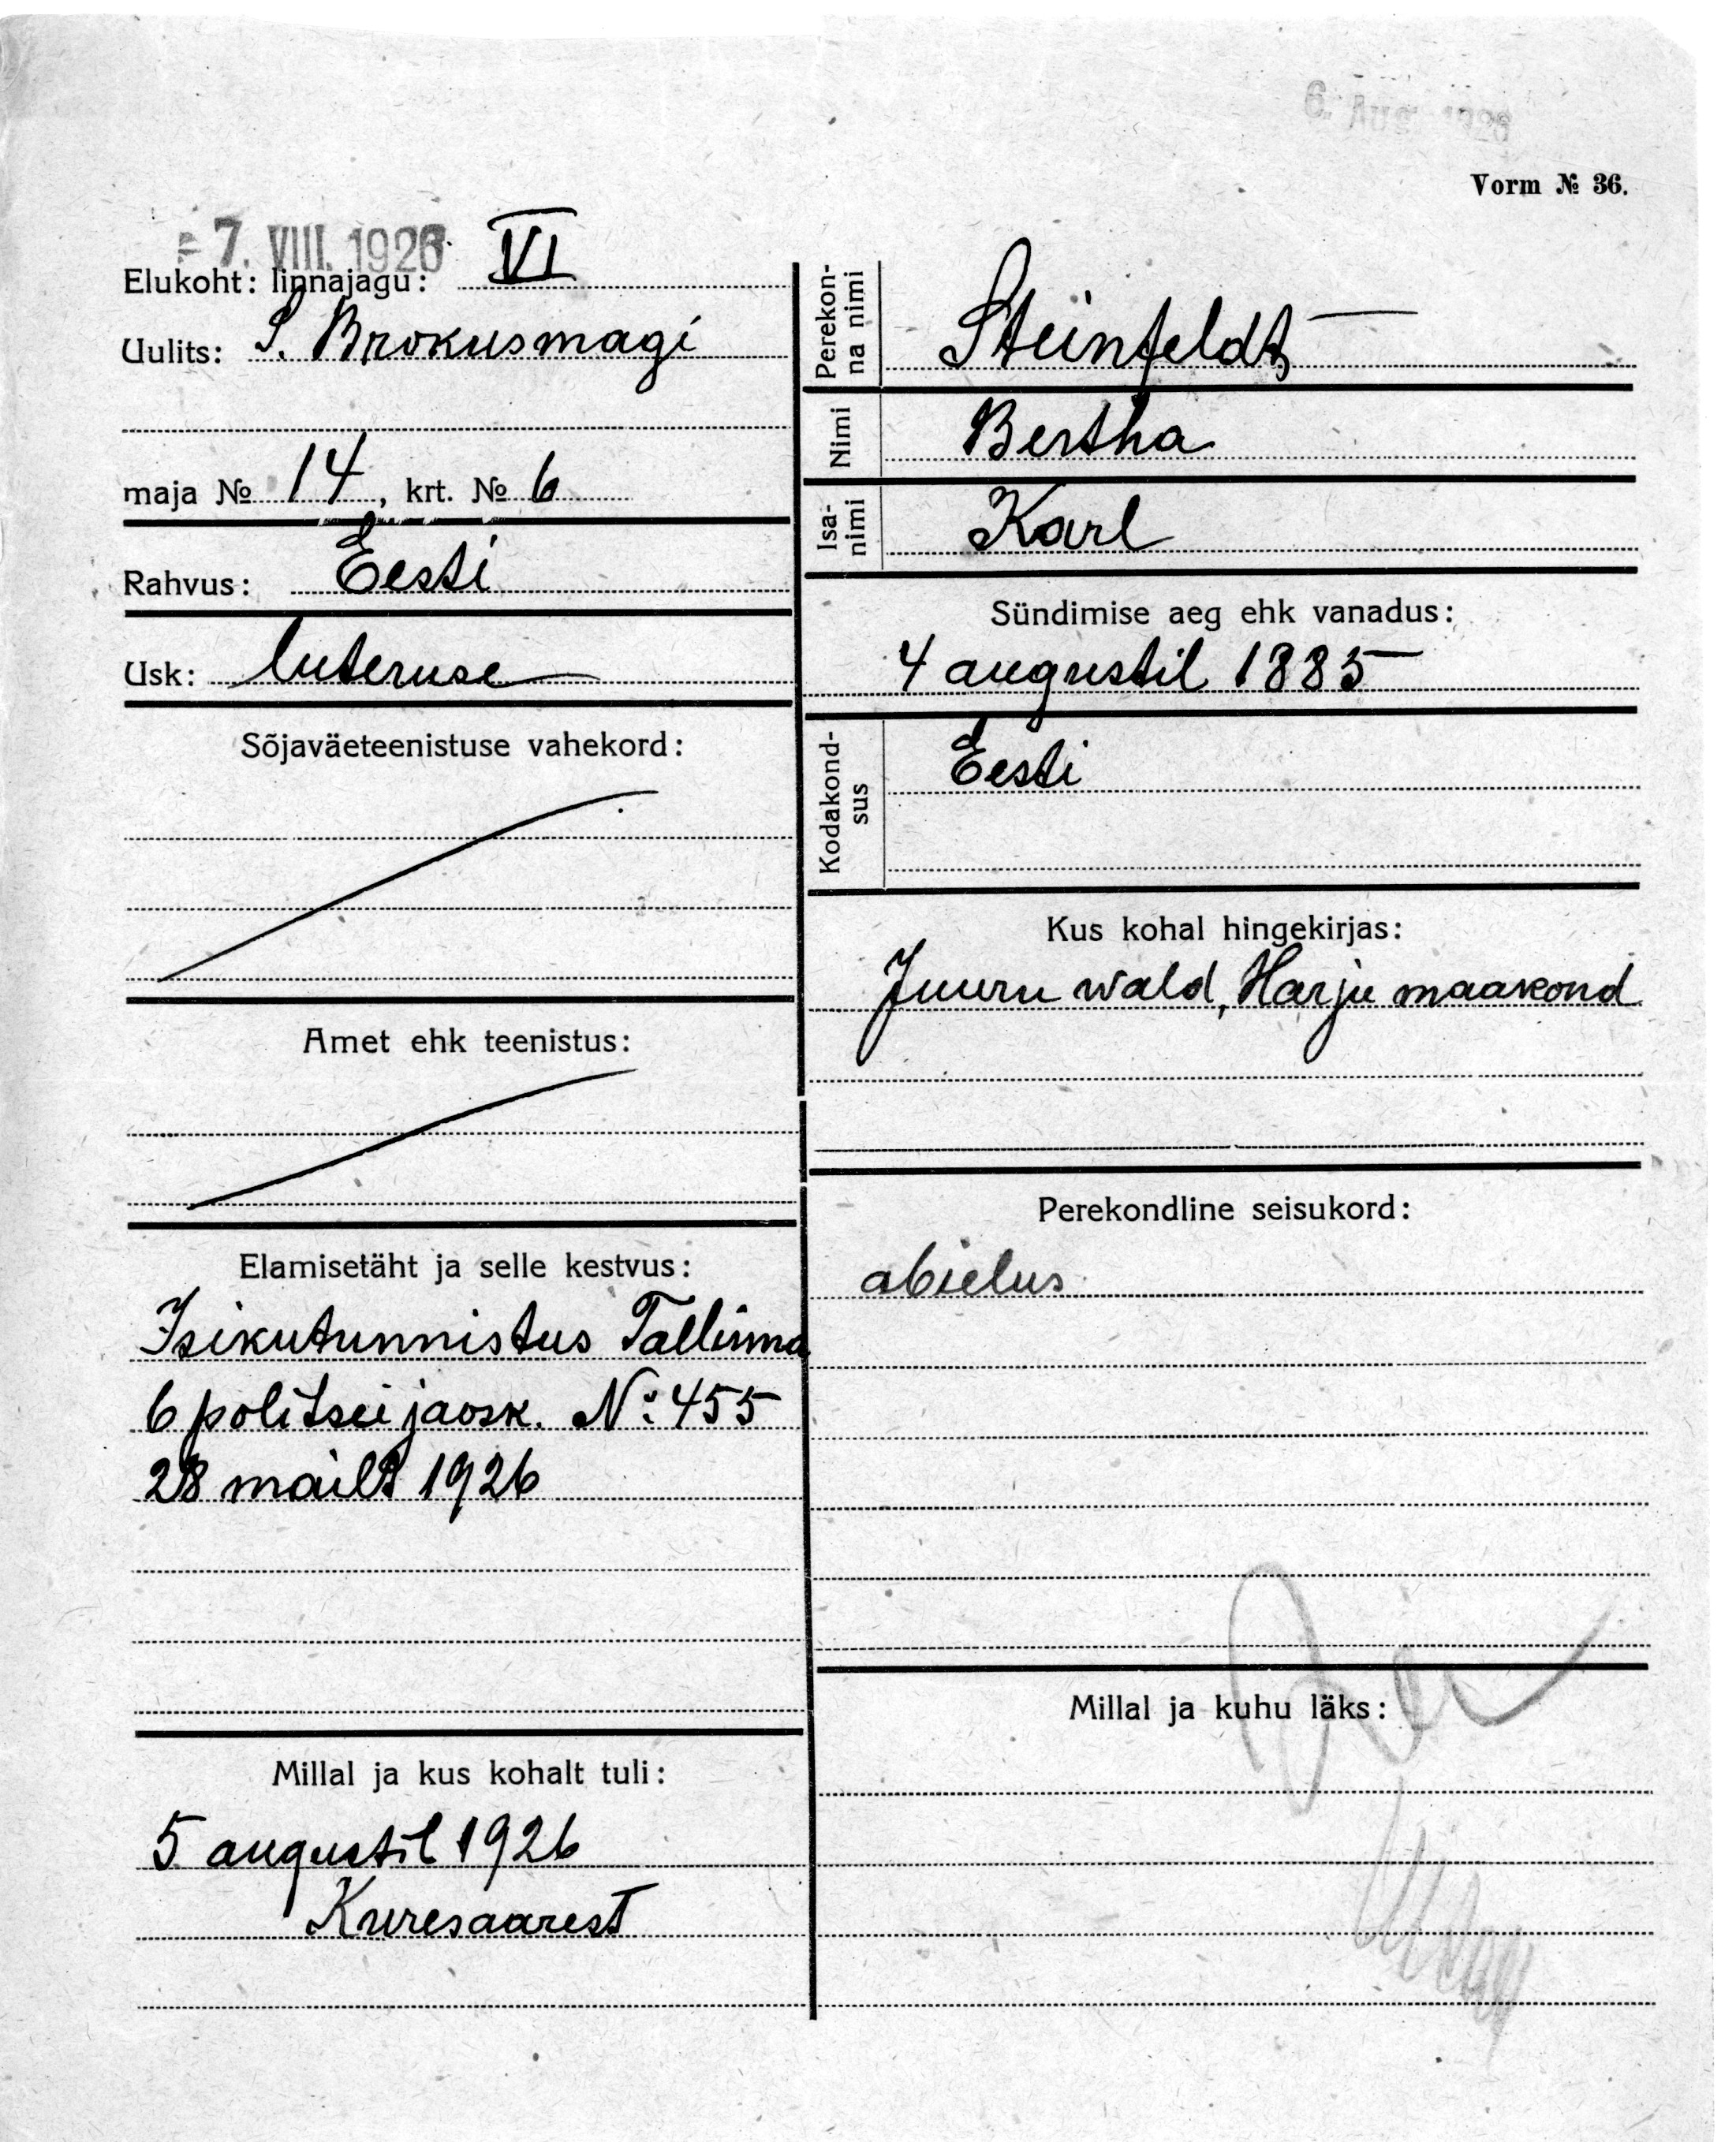 6. Aug. 1926
Vorm № 36.
7. VIII. 1926
Elukoht: linnajagu: VI
Uulits: S. Brokusmagi
maja № 14, krt. № 6
Rahvus: Eesti
Usk: luteruse
Sõjaväeteenistuse vahekord:
Amet ehk teenistus:
Elamisetäht ja selle kestvus:
Isikutunnistus Tallinna
6 politsei jaosk. №: 455
28 mailt 1926
Millal ja kus kohalt tuli:
5 augustil 1926
Kuresaarest
Perekon-
na nimi
Steinfeldt
Nimi
Bertha
Isa-
nimi
Karl
Sündimise aeg ehk vanadus:
4 augustil 1885
Kodakond-
sus
Eesti
Kus kohal hingekirjas:
Juuru wald, Harju maakond
Perekondline seisukord:
abielus
Millal ja kuhu läks: